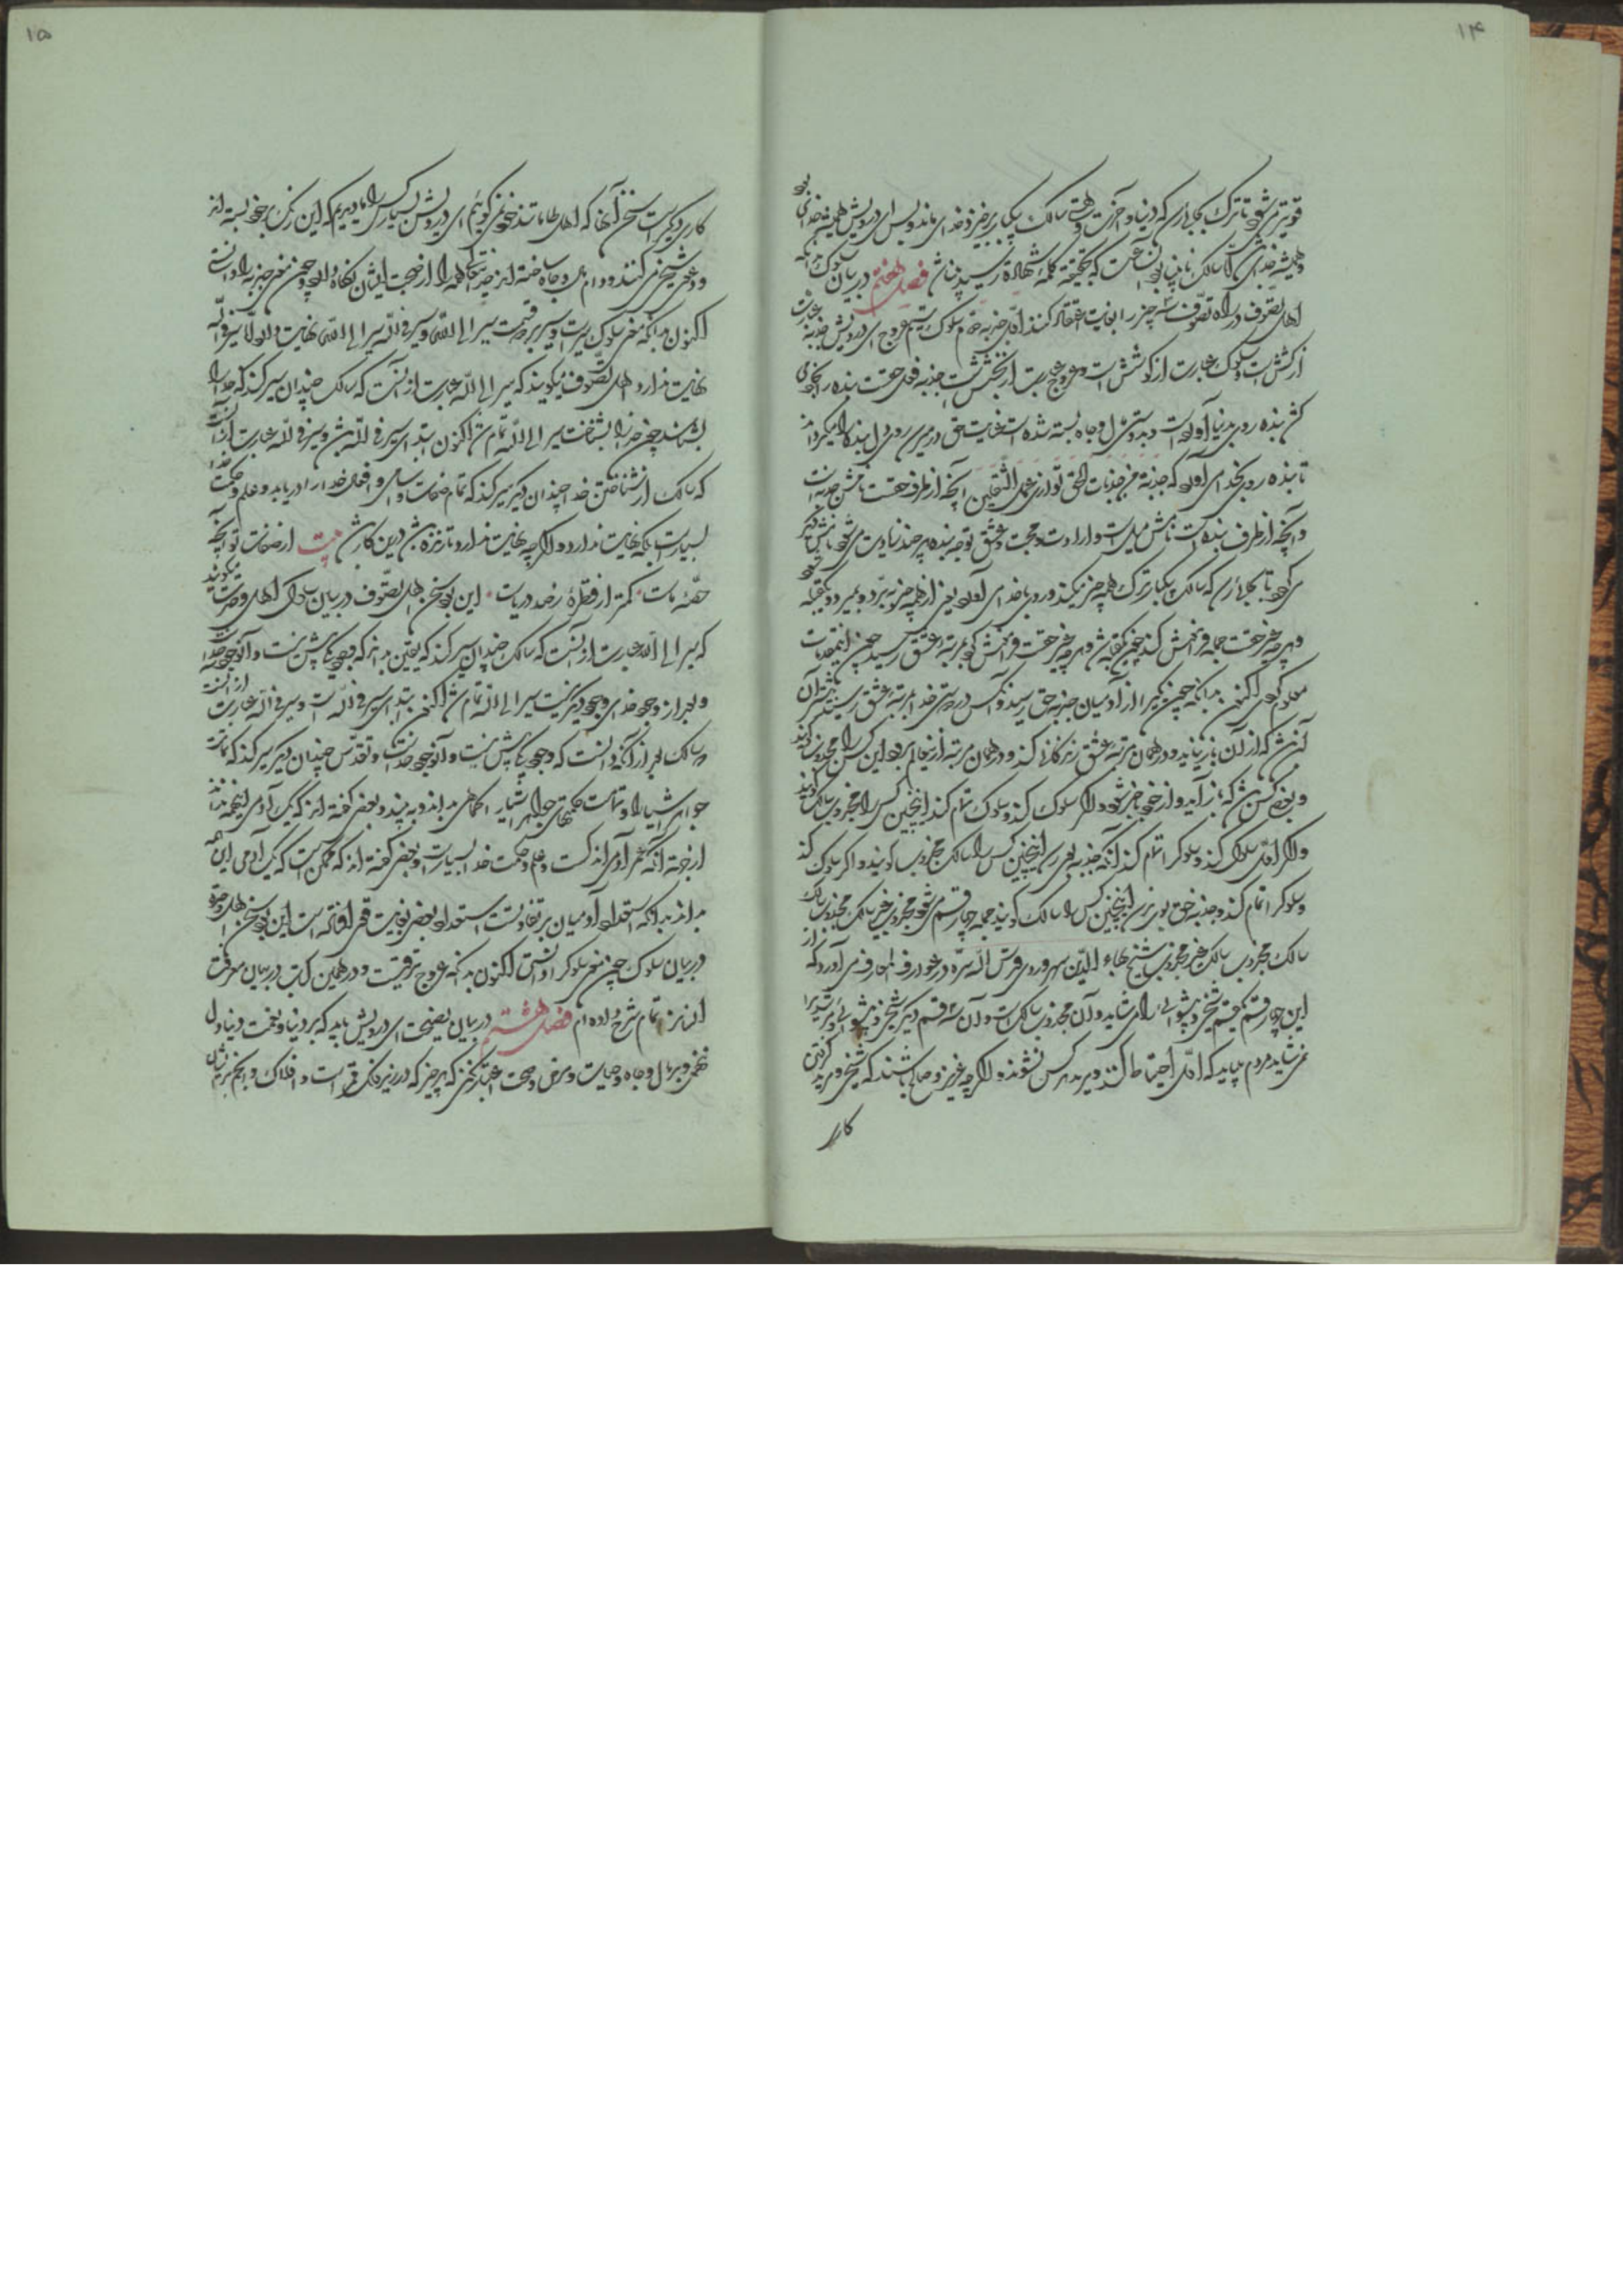 ۱۴
قویتر می‌شود تا ترک بجائی رسد که دنیا و آخرت و هستی سالک بیکبار برخیزد و خدای ماند و بس ای درویش همیشه خدای بود
و همیشه خدای باشد اما سالک نابینا بود آن ساعت که بحقیقت کلمه شهادت رسید بینا شد فصل هفتم در بیان سلوک بدانکه
اهل تصوف در راه تصوف سه چیز را بغایت اعتقاد کنند اول جذبه دوم سلوک سیم عروج ای درویش جذبه عبارت
از کشش است و سلوک عبارت از کوشش است و عروج عبارت از بخشش است جذبه فعل حقست بنده را بخود می
کشد بنده روی بدنیا آورده است و بدوستی مال و جاه بسته شده است عنایت حق در میرسد و روی دل بنده را میگرداند
تا بنده روی بخدای آورد که جذبة من جذبات الحق توازی عمل الثقلین آنچه از طرف حقست نامش جذبه است
و آنچه از طرف بنده است نامش میل است و ارادت و محبت و عشق توجه بنده هر چند زیادت می‌شود نامش دیگر
می‌گردد تا بجائی رسد که سالک بیکبار ترک همه چیز میکند و روی بخدای آورد یعنی از همه چیز ببرد و بمیرد و یک قبله شود
و هر چه غیر حقست جمله فراموش کند چون یک قبله شد و هر چه غیر حقست فراموش کرد بمرتبه عشق رسید چون این مقدمات
معلوم کردی اکنون بدانکه چون یکی را از آدمیان جذبه حق رسید و آنکس در دوستی خدا بمرتبه عشق رسید بیشتر آن
کس باشد که از آن باز نیاید و در همان مرتبه عشق زندگانی کند و در همان مرتبه از این عالم برود این کس را مجذوب گویند
و بعضی کس باشد که باز آید و از خود باخبر شود و اگر سلوک کند و سلوک تمام کند اینچنین کس را مجذوب سالک گویند
و اگر اول سلوک کند و سلوک را تمام کند آنگه جذبه بوی رسد اینچنین کس را سالک مجذوب گویند و اگر سلوک کند
و سلوک را تمام کند و جذبه حق بوی نرسد اینچنین کس را سالک گویند جمله چهار قسم می‌شود مجذوب غیر سالک مجذوب سالک
سالک مجذوب سالک غیر مجذوب شیخ بهاء الدین سهروردی قدس الله سره در عوارف المعارف می آورد که از
این چهار قسم یک قسم شیخی و پیشوائی را می‌شاید و آن مجذوب سالک است و آن سه قسم دیگر شیخی و پیشوائی و تربیت را
نمی‌شاید مردم میباید که اول احتیاط کنند و مرید هر کس نشوند و اگر چه عزیز و صالح باشند که شیخی و مرید گرفتن
کاری
۱۵
کاری دیگر است سخن آنها که اهل طامات‌اند خود نمی‌گوئیم ای درویش بسیار کس را ما دیدیم که این رنگ بر خود بسته‌اند
و دعوی شیخی می‌کنند و دام مال و جاه ساخته‌اند خدایتعالی همه را از صحبت ایشان نگاه دارد چون معنی جذبه را دانستی
اکنون بدانکه معنی سلوک سیر است و سیر بر دو قسمت سیر الی الله و سیر فی الله سیر الی الله نهایت دارد اما سیر فی الله
نهایت ندارد و اهل تصوف میگویند که سیر الی الله عبارت از آنست که سالک چندان سیر کند که خدا را
بشناسد چون خدا را بشناخت سیر الی الله تمام شد اکنون ابتدای سیر فی الله شد و سیر فی الله عبارت از آنست
که سالک از شناختن خدا چندان دیگر سیر کند که تمام صفات و اسامی و افعال خدا را دریابد و علم و حکمت خدا
بسیار است بلکه نهایت ندارد و اگر چه نهایت ندارد تا زنده باشد درین کار باشد بیت از صفات تو آنچه
حصه ماست کمتر از قطره ز صد دریاست این بود سخن اهل تصوف در بیان سلوک اهل وحدت میگویند
که سیر الی الله عبارت از آنست که سالک چندان سیر کند که یقین بداند که وجود یکی بیش نیست و آن وجود خداست
و بغیر از وجود خدای وجود دیگر نیست سیر الی الله تمام شد اکنون ابتدای سیر فی الله است و سیر فی الله عبارت از آنست
که سالک بعد از آنکه دانست که وجود یکی بیش نیست و آن وجود خداست تعالی و تقدس چندان دیگر سیر کند که تمامت
جواهر اشیا را و تمامت حکمتهای جواهر اشیا را کماهی بداند و به بیند و بعضی گفته‌اند که یک آدمی اینهمه نداند
از جهت آنکه عمر آدمی اندک است و علم و حکمت خدا بسیار است و بعضی گفته‌اند که ممکن است که یک آدمی این همه
بداند بدانکه استعداد آدمیان بر تفاوتست استعداد بعضی بغایت قوی افتاده است این بود سخن اهل وحدت
در بیان سلوک چون معنی سلوک را دانستی اکنون بدانکه عروج ترقیست و در همین کتاب در بیان معرفت
انسان تمام شرح داده‌ام فصل هشتم در بیان نصیحت ای درویش باید که بر دنیا و نعمت دنیا دل
ننهی و بر مال و جاه و حیات و مرض و صحت اعتبار نکنی که هر چیز که در زیر فلک قمر است و افلاک و انجم بر ایشان